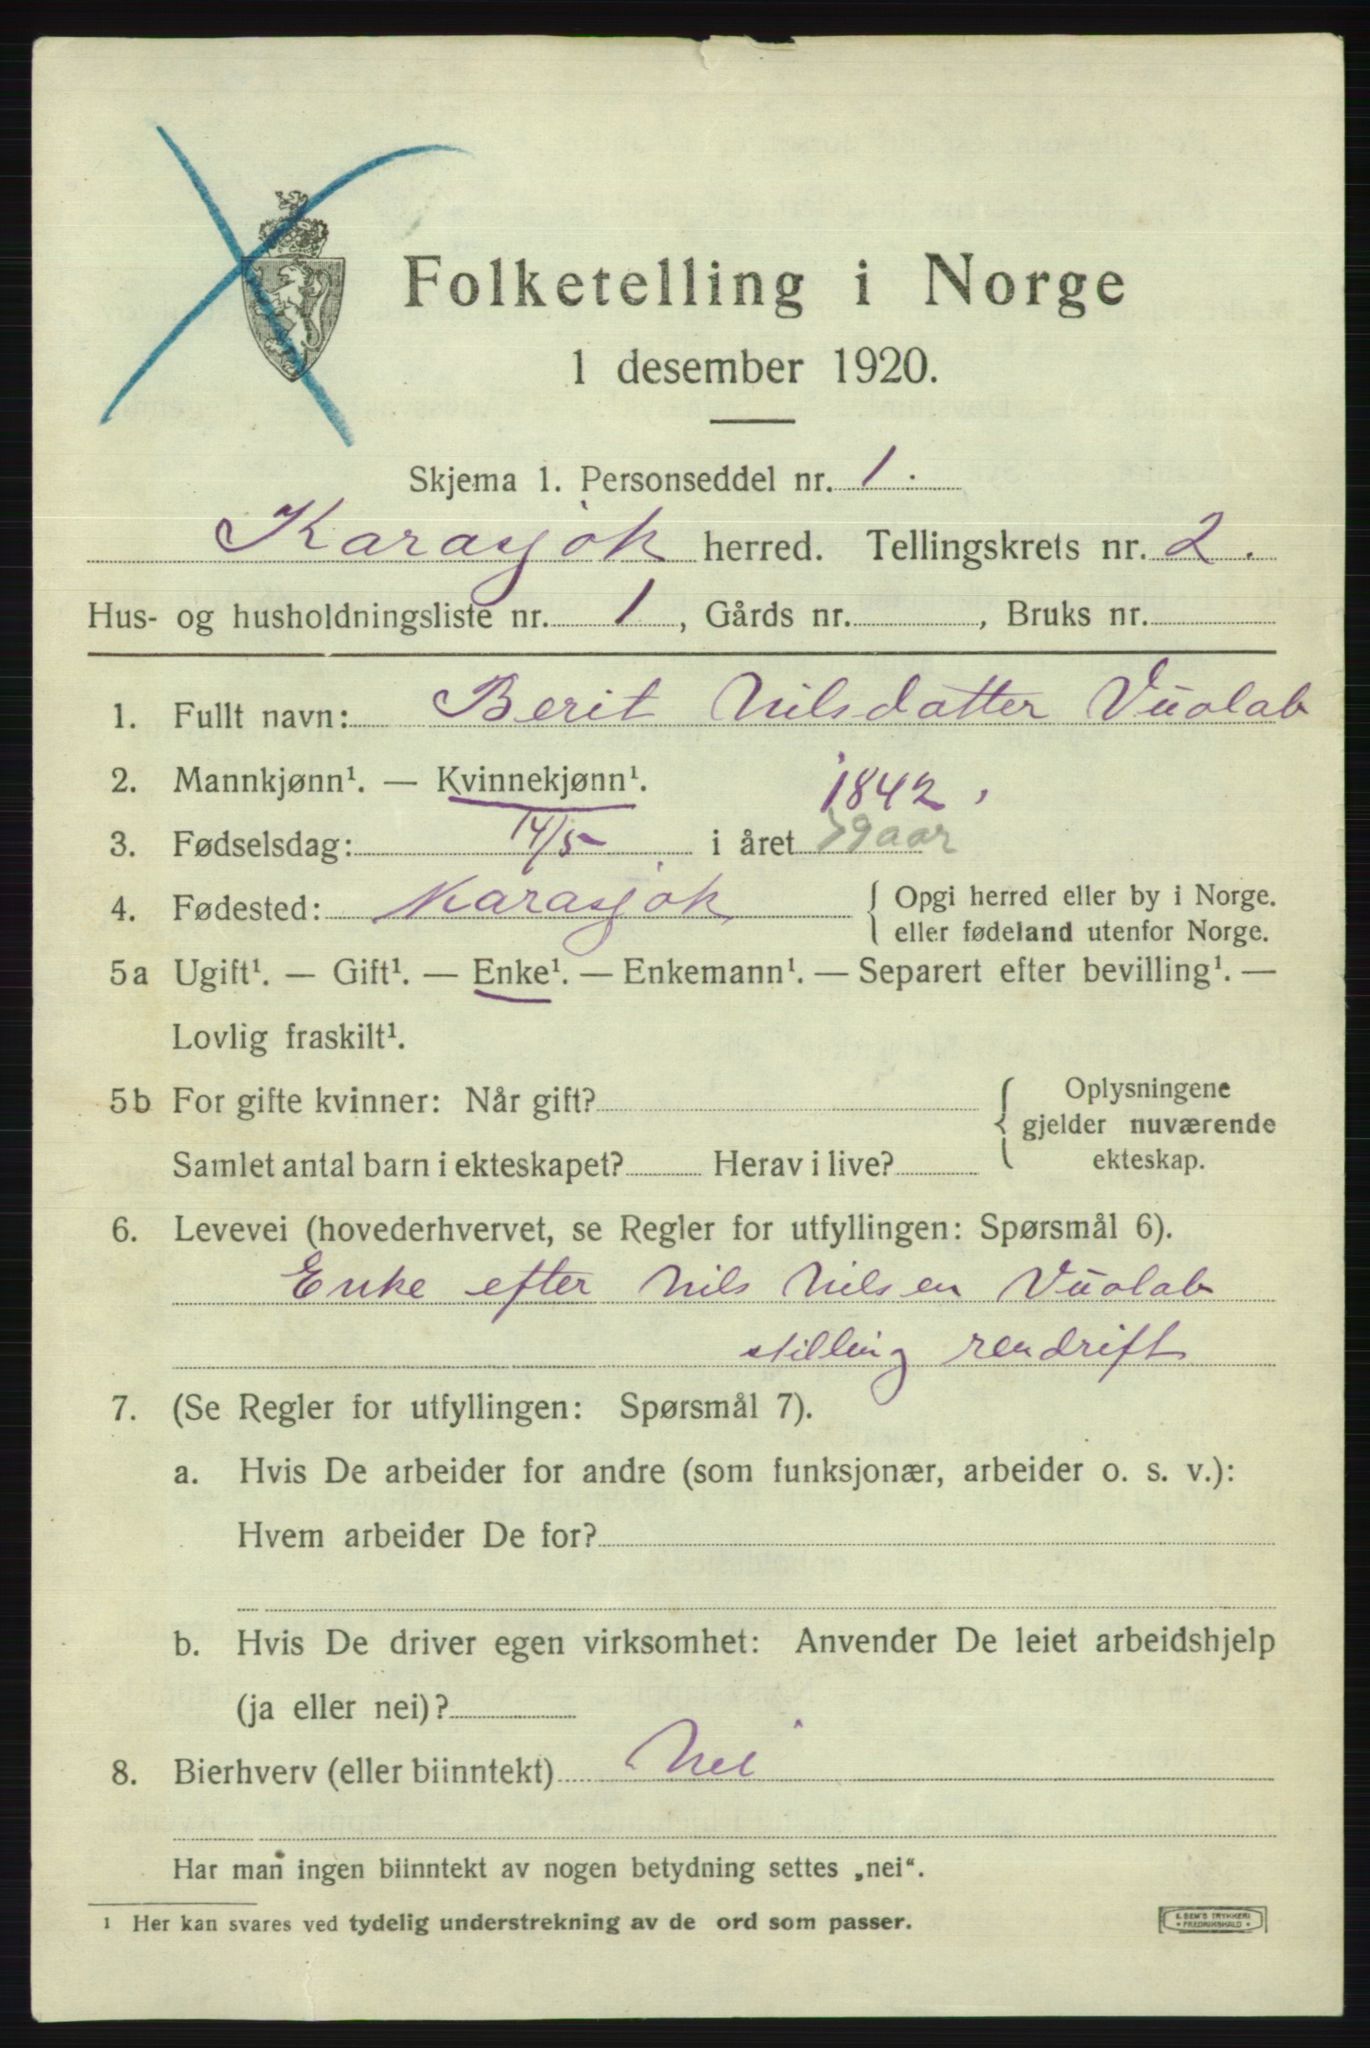 Folketelling i Norge
1 desember 1920.
Skjema 1. Personseddel nr. 1.
Karasjok herred. Tellingskrets nr. 2.
Hus- og husholdningsliste nr. 1, Gårds nr. , Bruks nr.
1. Fullt navn: Berit Nilsdatter Vuolab
2. Mannkjønn¹. — Kvinnekjønn¹.
1842,
3. Fødselsdag: 14/5 i året 79 aar
4. Fødested: Karasjok { Opgi herred eller by i Norge.
eller fødeland utenfor Norge.
5a Ugift¹. — Gift¹. — Enke¹. — Enkemann¹. — Separert efter bevilling¹. —
Lovlig fraskilt¹.
5b For gifte kvinner: Når gift? { Oplysningene
gjelder nuværende
Samlet antal barn i ekteskapet? Herav i live? ekteskap.
6. Levevei (hovederhvervet, se Regler for utfyllingen: Spørsmål 6).
Enke efter Nils Nilsen Vuolab
stilling rendrift
7. (Se Regler for utfyllingen: Spørsmål 7).
a. Hvis De arbeider for andre (som funksjonær, arbeider o. s. v.):
Hvem arbeider De for?
b. Hvis De driver egen virksomhet: Anvender De leiet arbeidshjelp
(ja eller nei)?
8. Bierhverv (eller biinntekt) Nei
Har man ingen biinntekt av nogen betydning settes „nei“.
¹ Her kan svares ved tydelig understrekning av de ord som passer.
E. SEM'S TRYKKERI
• FREDRIKSHALD •